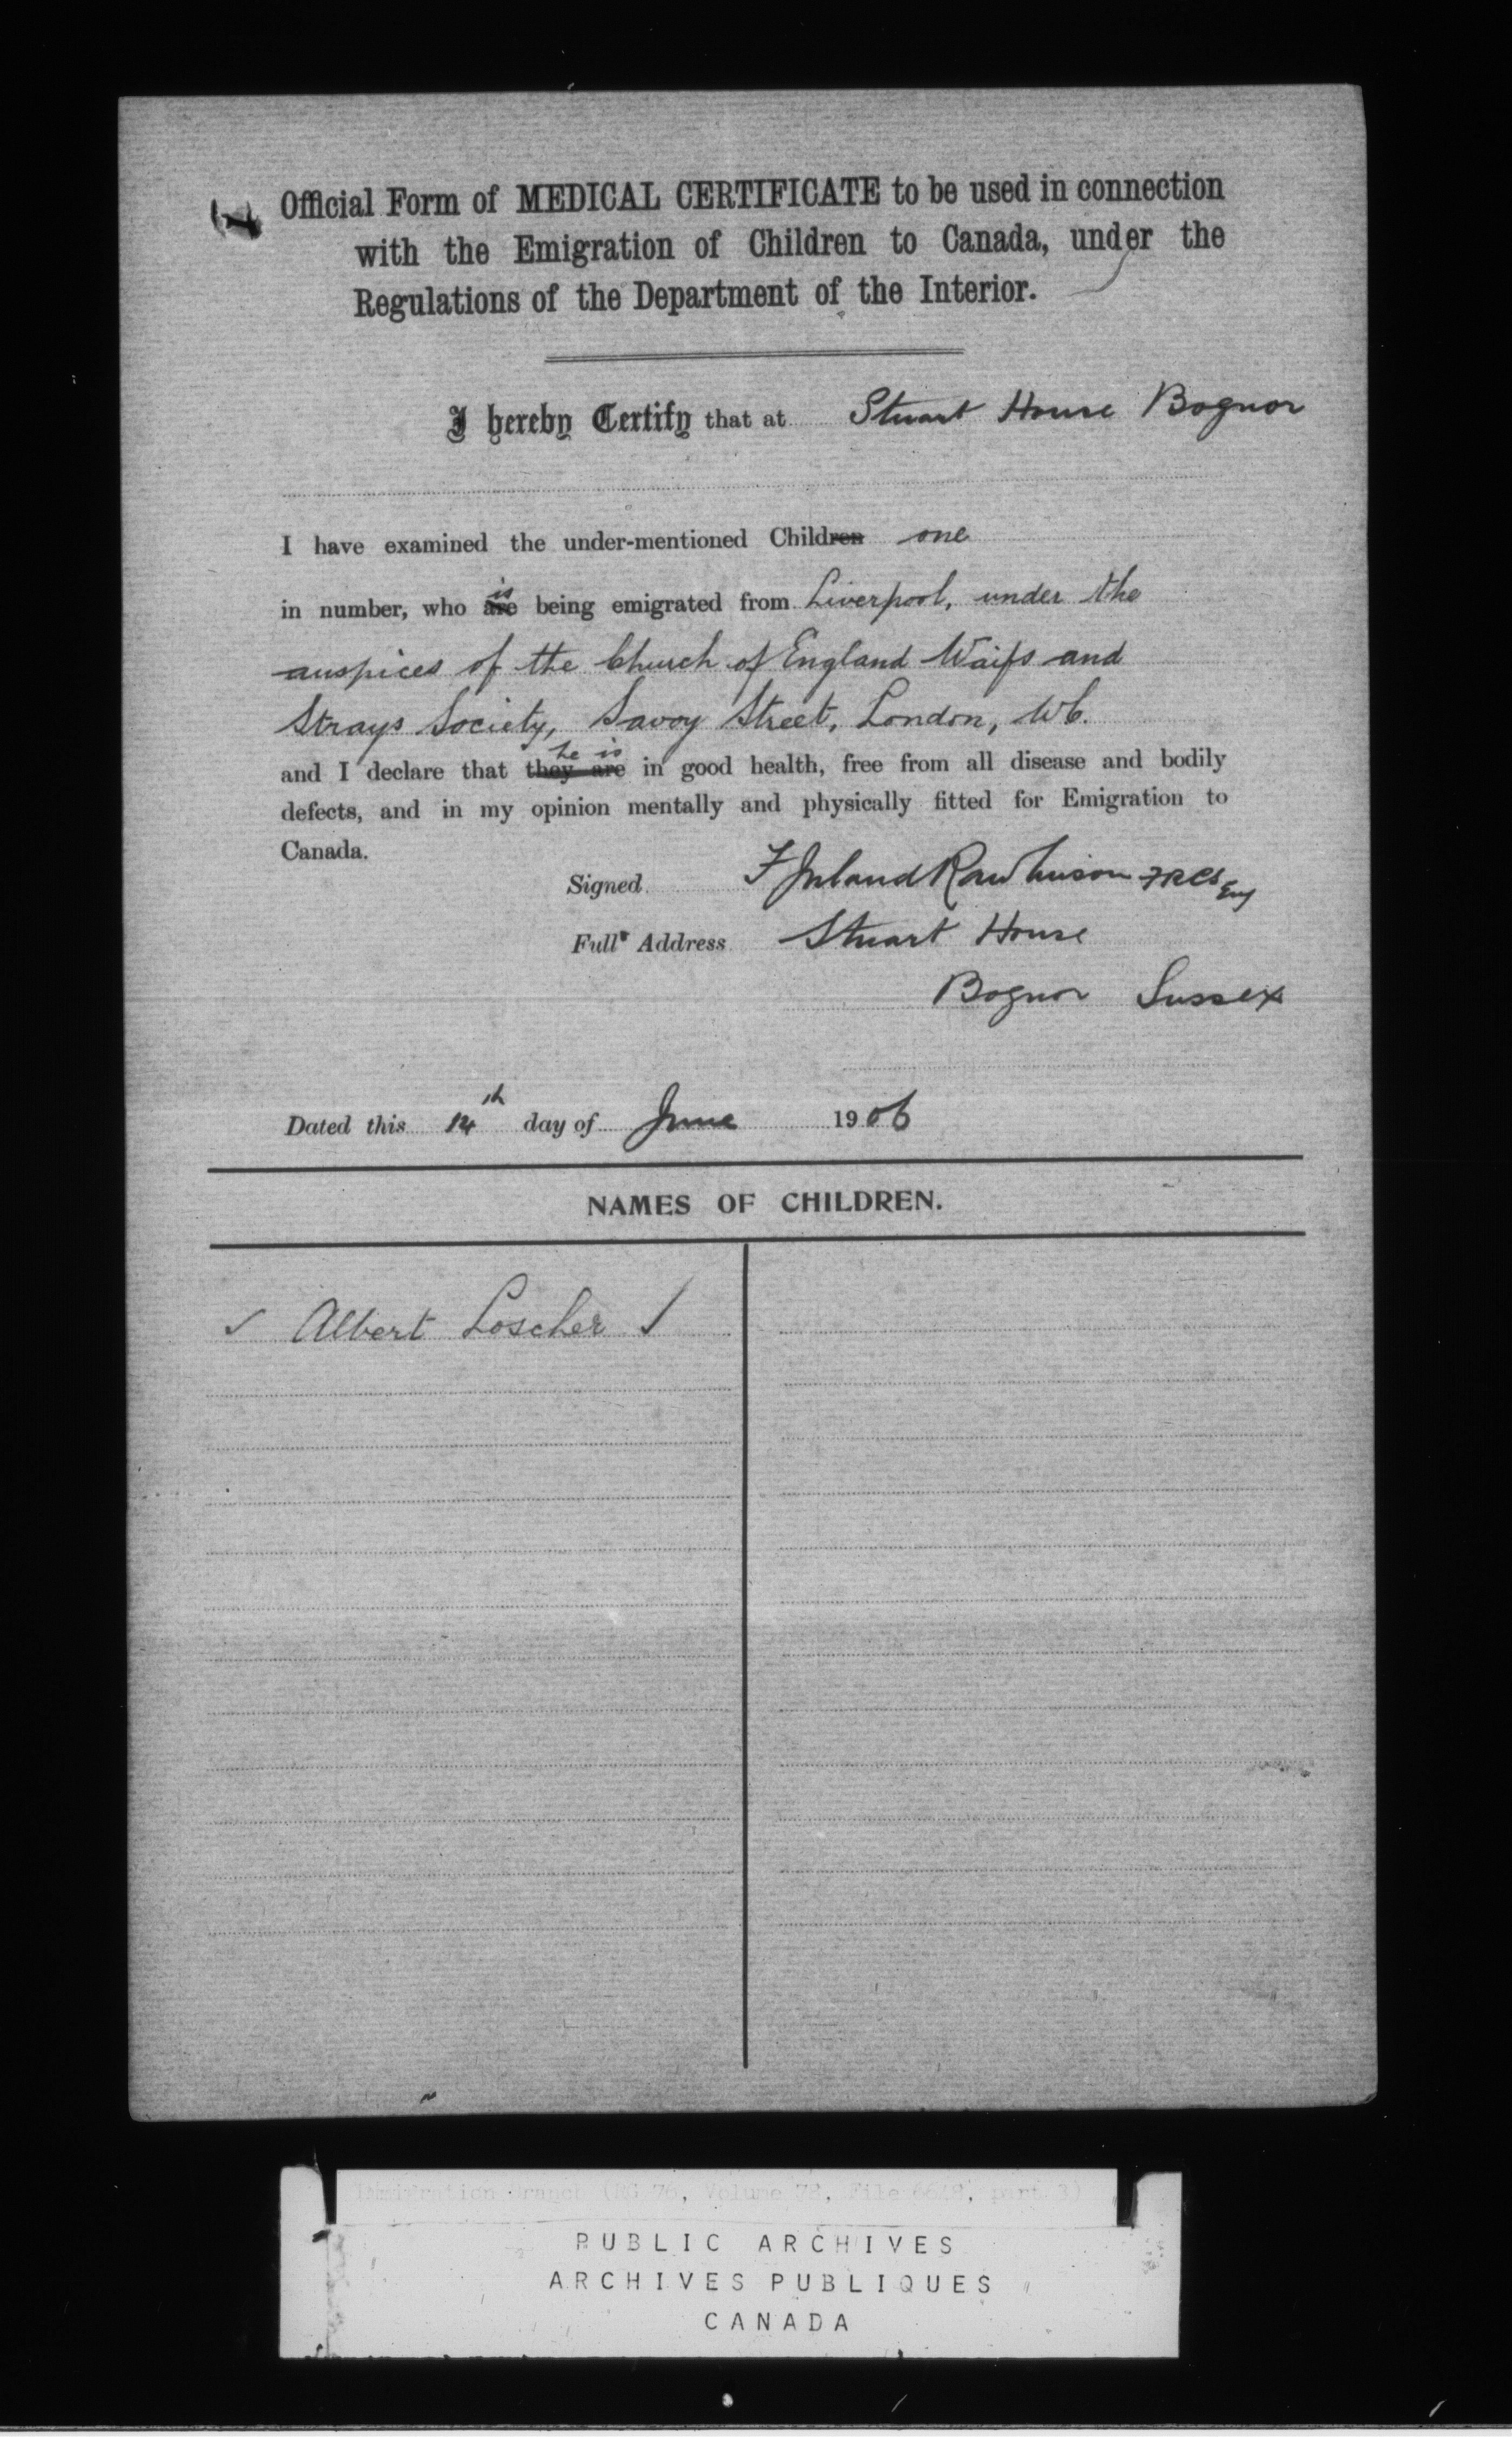 Official Form of MEDICAL CERTIFICATE to be used in connection
with the Emigration of Children to Canada, under the
Regulations of the Department of the Interior.
I hereby Certify that at Stuart House Bognor
I have examined the under-mentioned Children one
is
in number, who are being emigrated from Liverpool, under the
auspices of the Church of England Waifs and
Strays Society, Savoy Street, London, W.C.
he is
and I declare that they are in good health, free from all disease and bodily
defects, and in my opinion mentally and physically fitted for Emigration to
Canada.
Signed F Rawlinson FRCS Eng
Full Address Stuart House
Bognor Sussex
Dated this 14th day of June 1906
NAMES OF CHILDREN.
✓ Albert Loscher ✓
Immigration Branch (RG 76, Volume 78, File 6648, part 3)
PUBLIC ARCHIVES
ARCHIVES PUBLIQUES
CANADA